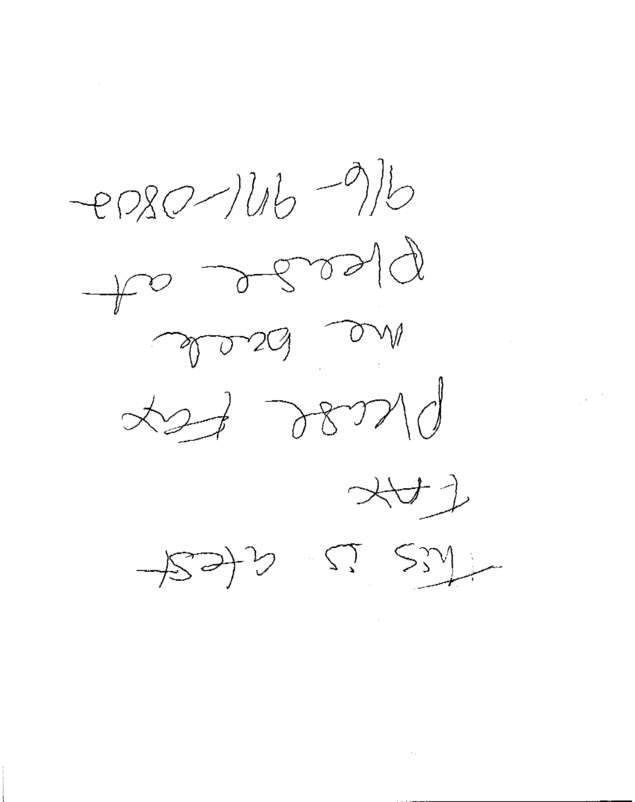 This is a test
FAX
please Fax
me back
please at
916-971-0802